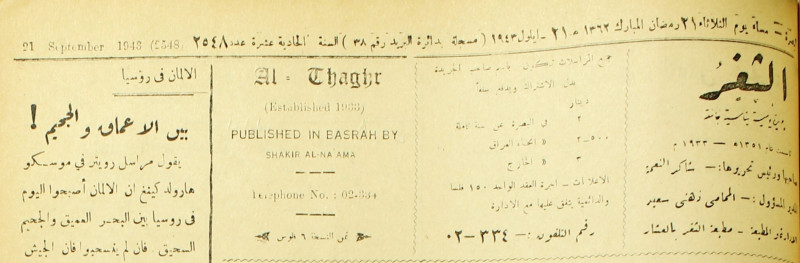 البصرة — مساء يوم الثلاثاء ٢١ رمضان المبارك ١٣٦٢ هـ ٢١ - ايلول ١٩٤٣ ( مسجلة بدائرة البريد رقم ٣٨ ) السنة الحادية عشرة عدد ٢٥٤٨ (2548) 21 September 1943
الثغر
جريدة يومية سياسية جامعة
١٣٥١ هـ — ١٩٣٣ م
صاحبها ورئيس تحريرها :— شاكر النعمة
المدير المسؤول :— المحامي زهدي سعيد
الادارة و المطبعة - مطبعة الثغر بالعشار
جميع المراسلات تكون باسم صاحب الجريدة
بدل الاشتراك ويدفع سلفاً
دينار
٢ في البصرة عن سنة كاملة
٢-٥٠٠ « انحاء العراق
٣ « الخارج
الاعلانات - اجرة العقد الواحد ١٥٠ فلسا
والدائمية يتفق عليها مع الادارة
رقم التلفون :— ٣٣٤-٠٢
Al - Thaghr
(Established 1933)
PUBLISHED IN BASRAH BY
SHAKIR AL-NA'AMA
Telephone No. : 02-334
ثمن النسخة ٦ فلوس
الالمان في روسيا
بين الاعماق والجحيم !
يقول مراسل رويتر في موسكو
هارولد كينغ ان الالمان أصبحوا اليوم
في روسيا بين البحر العميق والجحيم
السحيق . فان لم يفسحوا فان الجيش